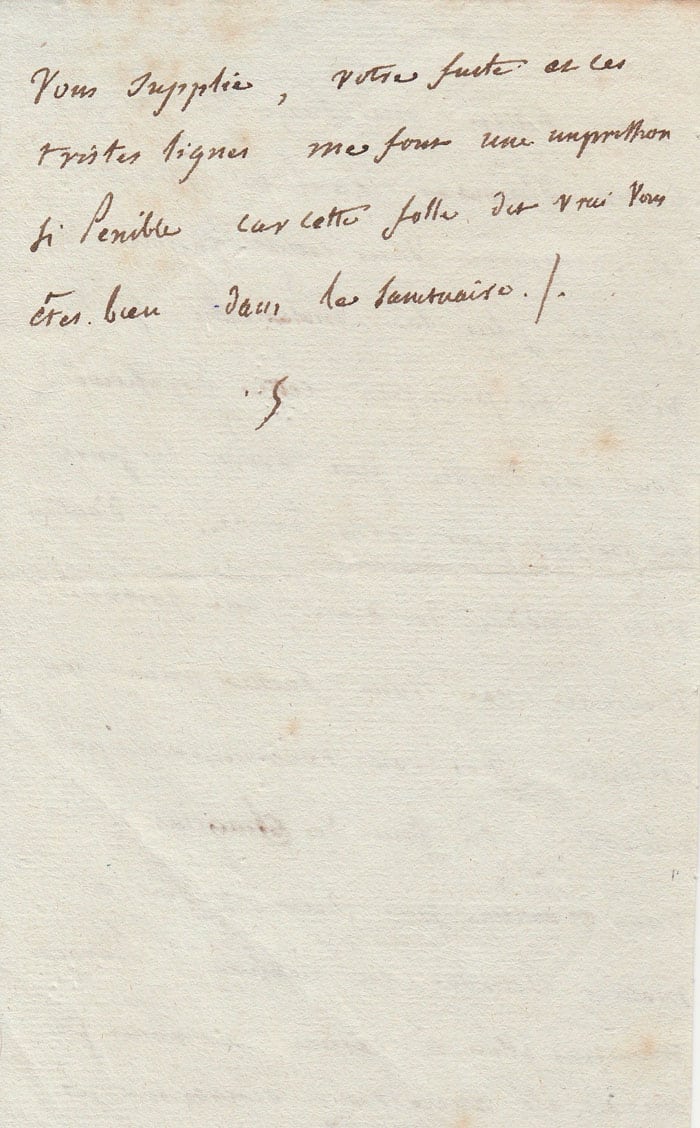 Vous supplie, votre fuite et ces
tristes lignes me font une impression
si Penible car cette folle dit vrai Vous
êtes. bien dans le Sanctuaire. /.
S